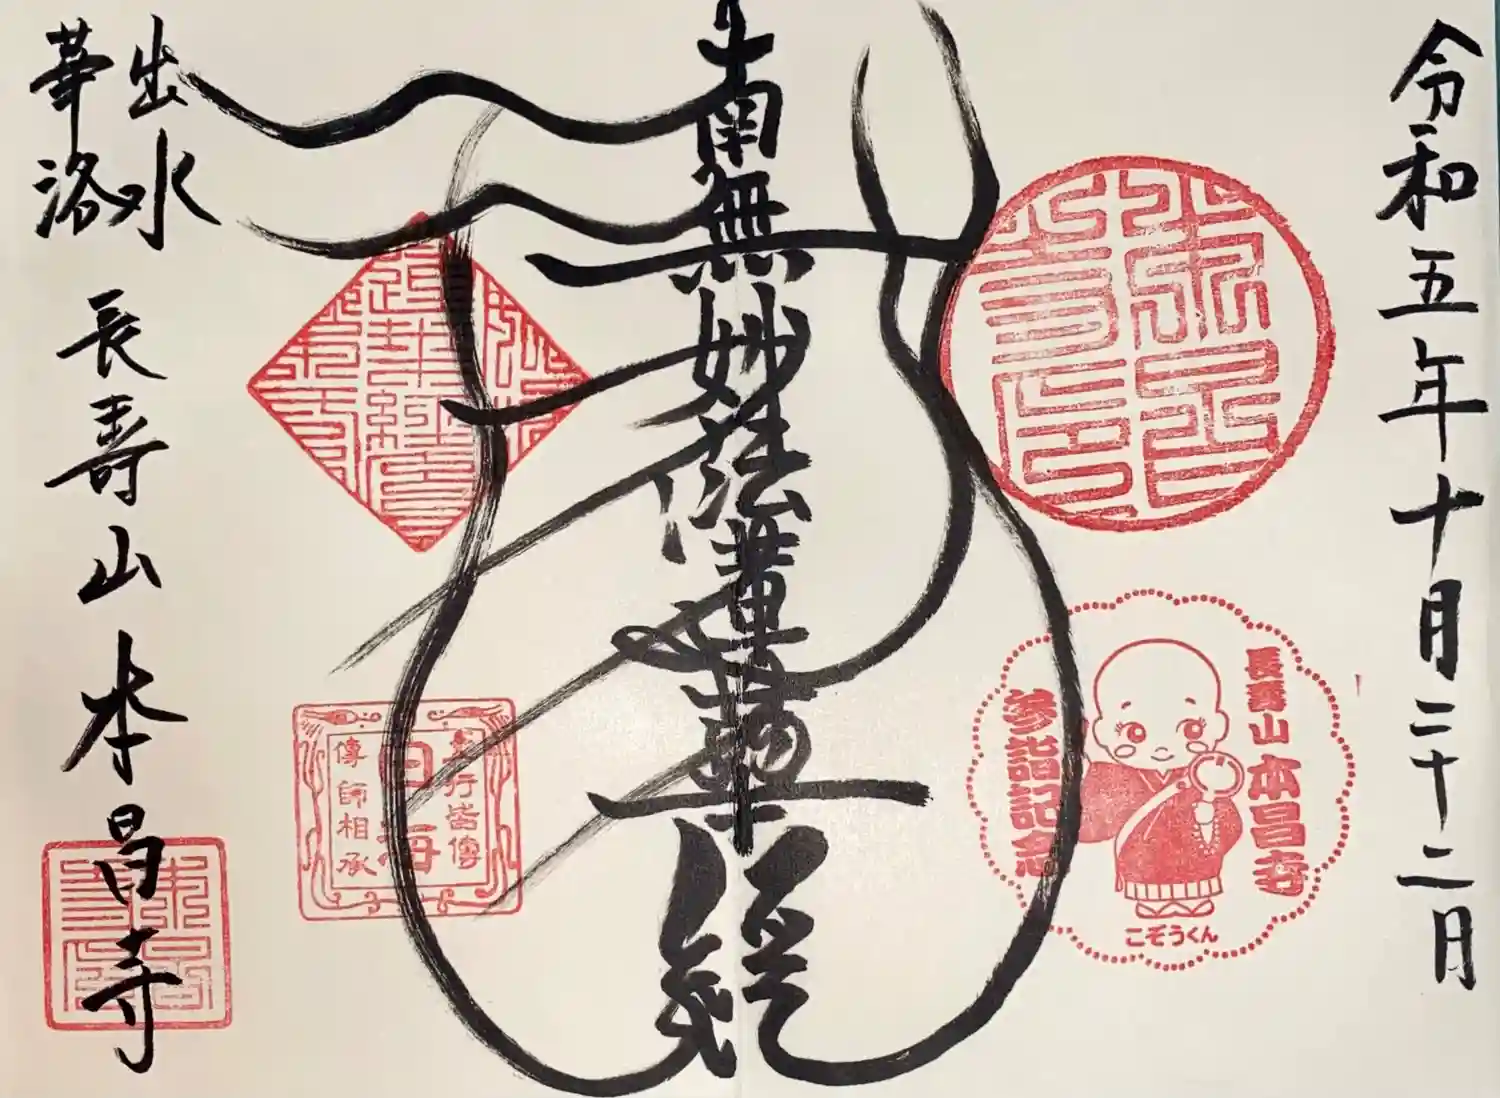 令和五年十月二十二日
長寿山本昌寺
参詣記念
こぞうくん
南無妙法蓮華経
傳師相承
出水
華洛
長寿山 本昌寺